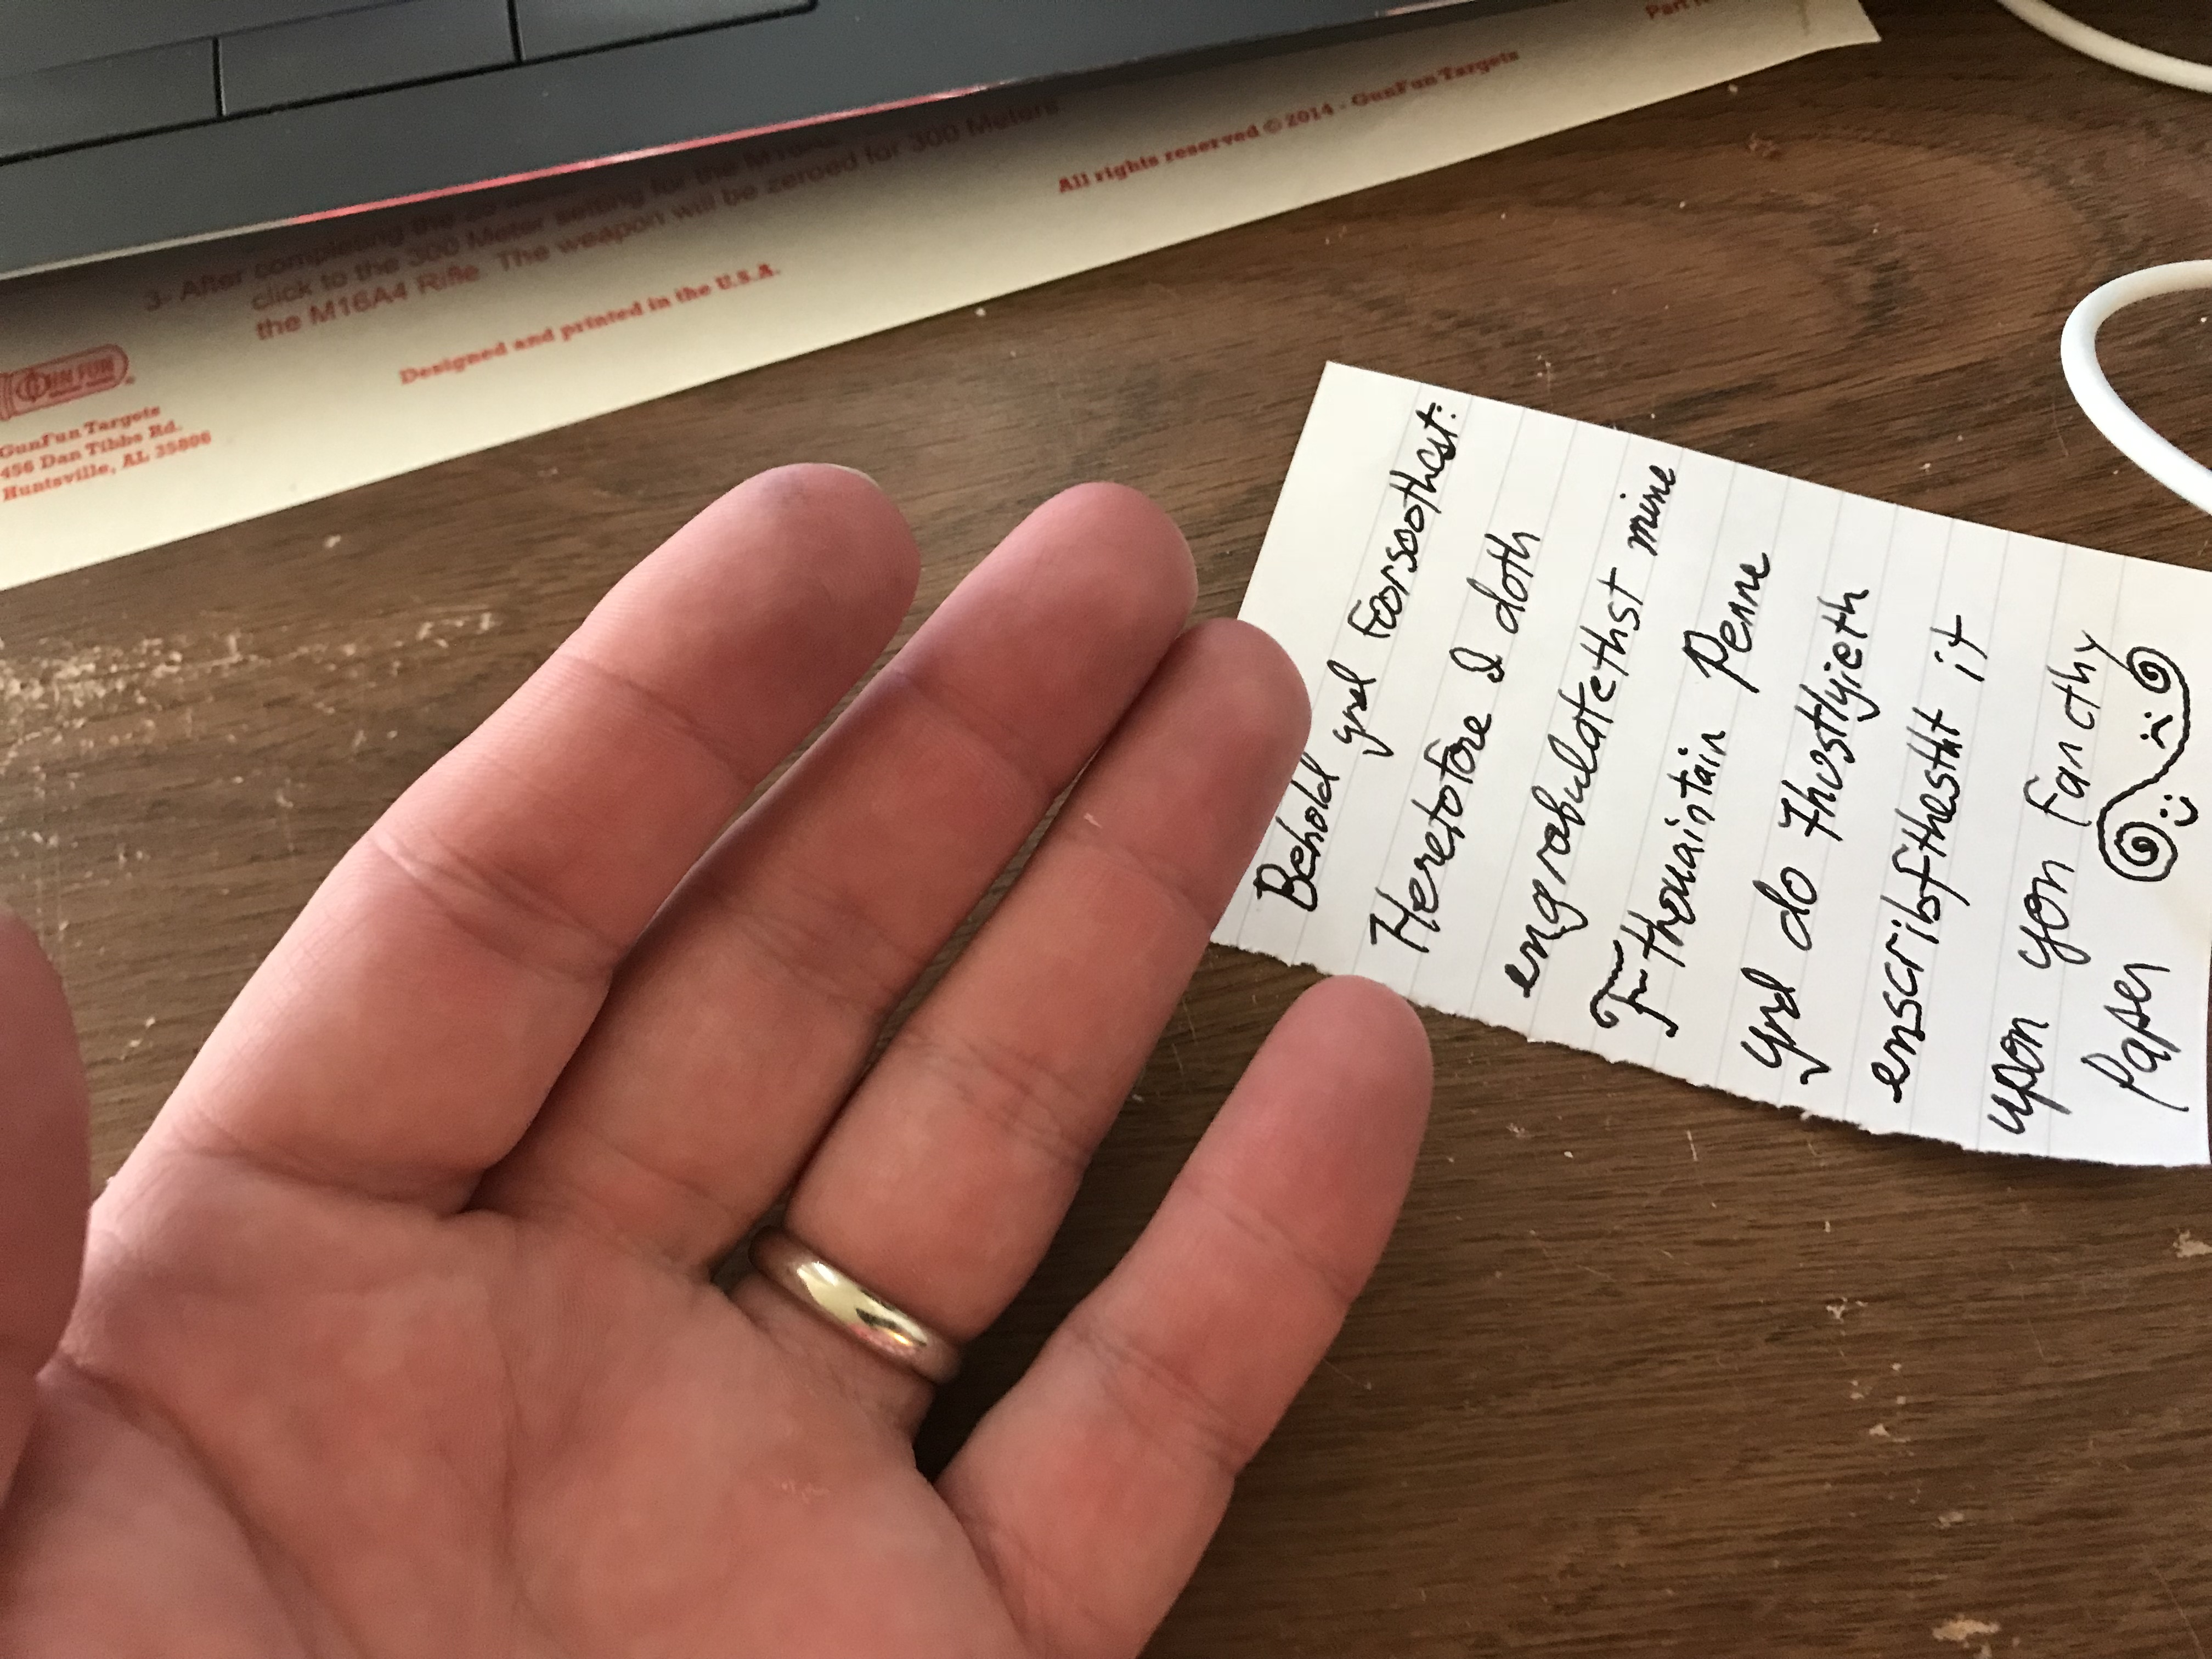 Part
3- After completing the
click to the 300 Meter setting for the M16A2
the M16A4 Rifle. The weapon will be zeroed for 300 Meters
All rights reserved © 2014 - GunFun Targets
Designed and printed in the U.S.A.
GUN FUN
GunFun Targets
456 Dan Tibbs Rd.
Huntsville, AL 35806
Behold ynd Forsoothest:
Heretofore I doth
engrabulatethst mine
Fthouaintain Penne
ynd do Thustlyieth
enscribfthestht it
upon yon Fancthy
Paper